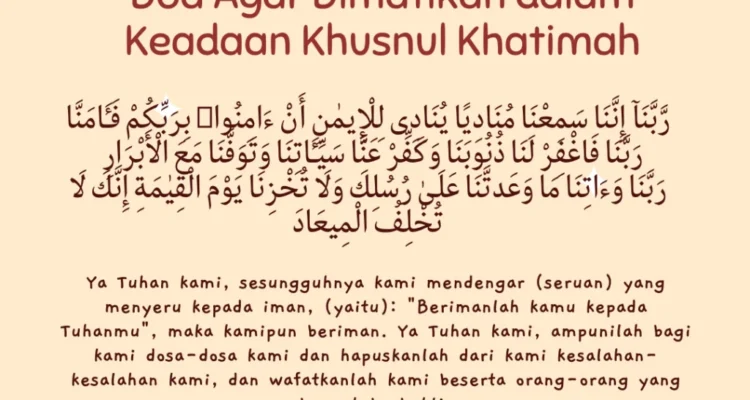 Doa Agar Dimatikan dalam
Keadaan Khusnul Khatimah
رَّبَّنَآ إِنَّنَا سَمِعْنَا مُنَادِيًا يُنَادِى لِلْإِيمَٰنِ أَنْ ءَامِنُوا۟ بِرَبِّكُمْ فَـَٔامَنَّا
رَبَّنَا فَاغْفِرْ لَنَا ذُنُوبَنَا وَكَفِّرْ عَنَّا سَيِّـَٔاتِنَا وَتَوَفَّنَا مَعَ الْأَبْرَارِ
رَبَّنَا وَءَاتِنَا مَا وَعَدتَّنَا عَلَىٰ رُسُلِكَ وَلَا تُخْزِنَا يَوْمَ الْقِيَٰمَةِ إِنَّكَ لَا
تُخْلِفُ الْمِيعَادَ
Ya Tuhan kami, sesungguhnya kami mendengar (seruan) yang
menyeru kepada iman, (yaitu): "Berimanlah kamu kepada
Tuhanmu", maka kamipun beriman. Ya Tuhan kami, ampunilah bagi
kami dosa-dosa kami dan hapuskanlah dari kami kesalahan-
kesalahan kami, dan wafatkanlah kami beserta orang-orang yang